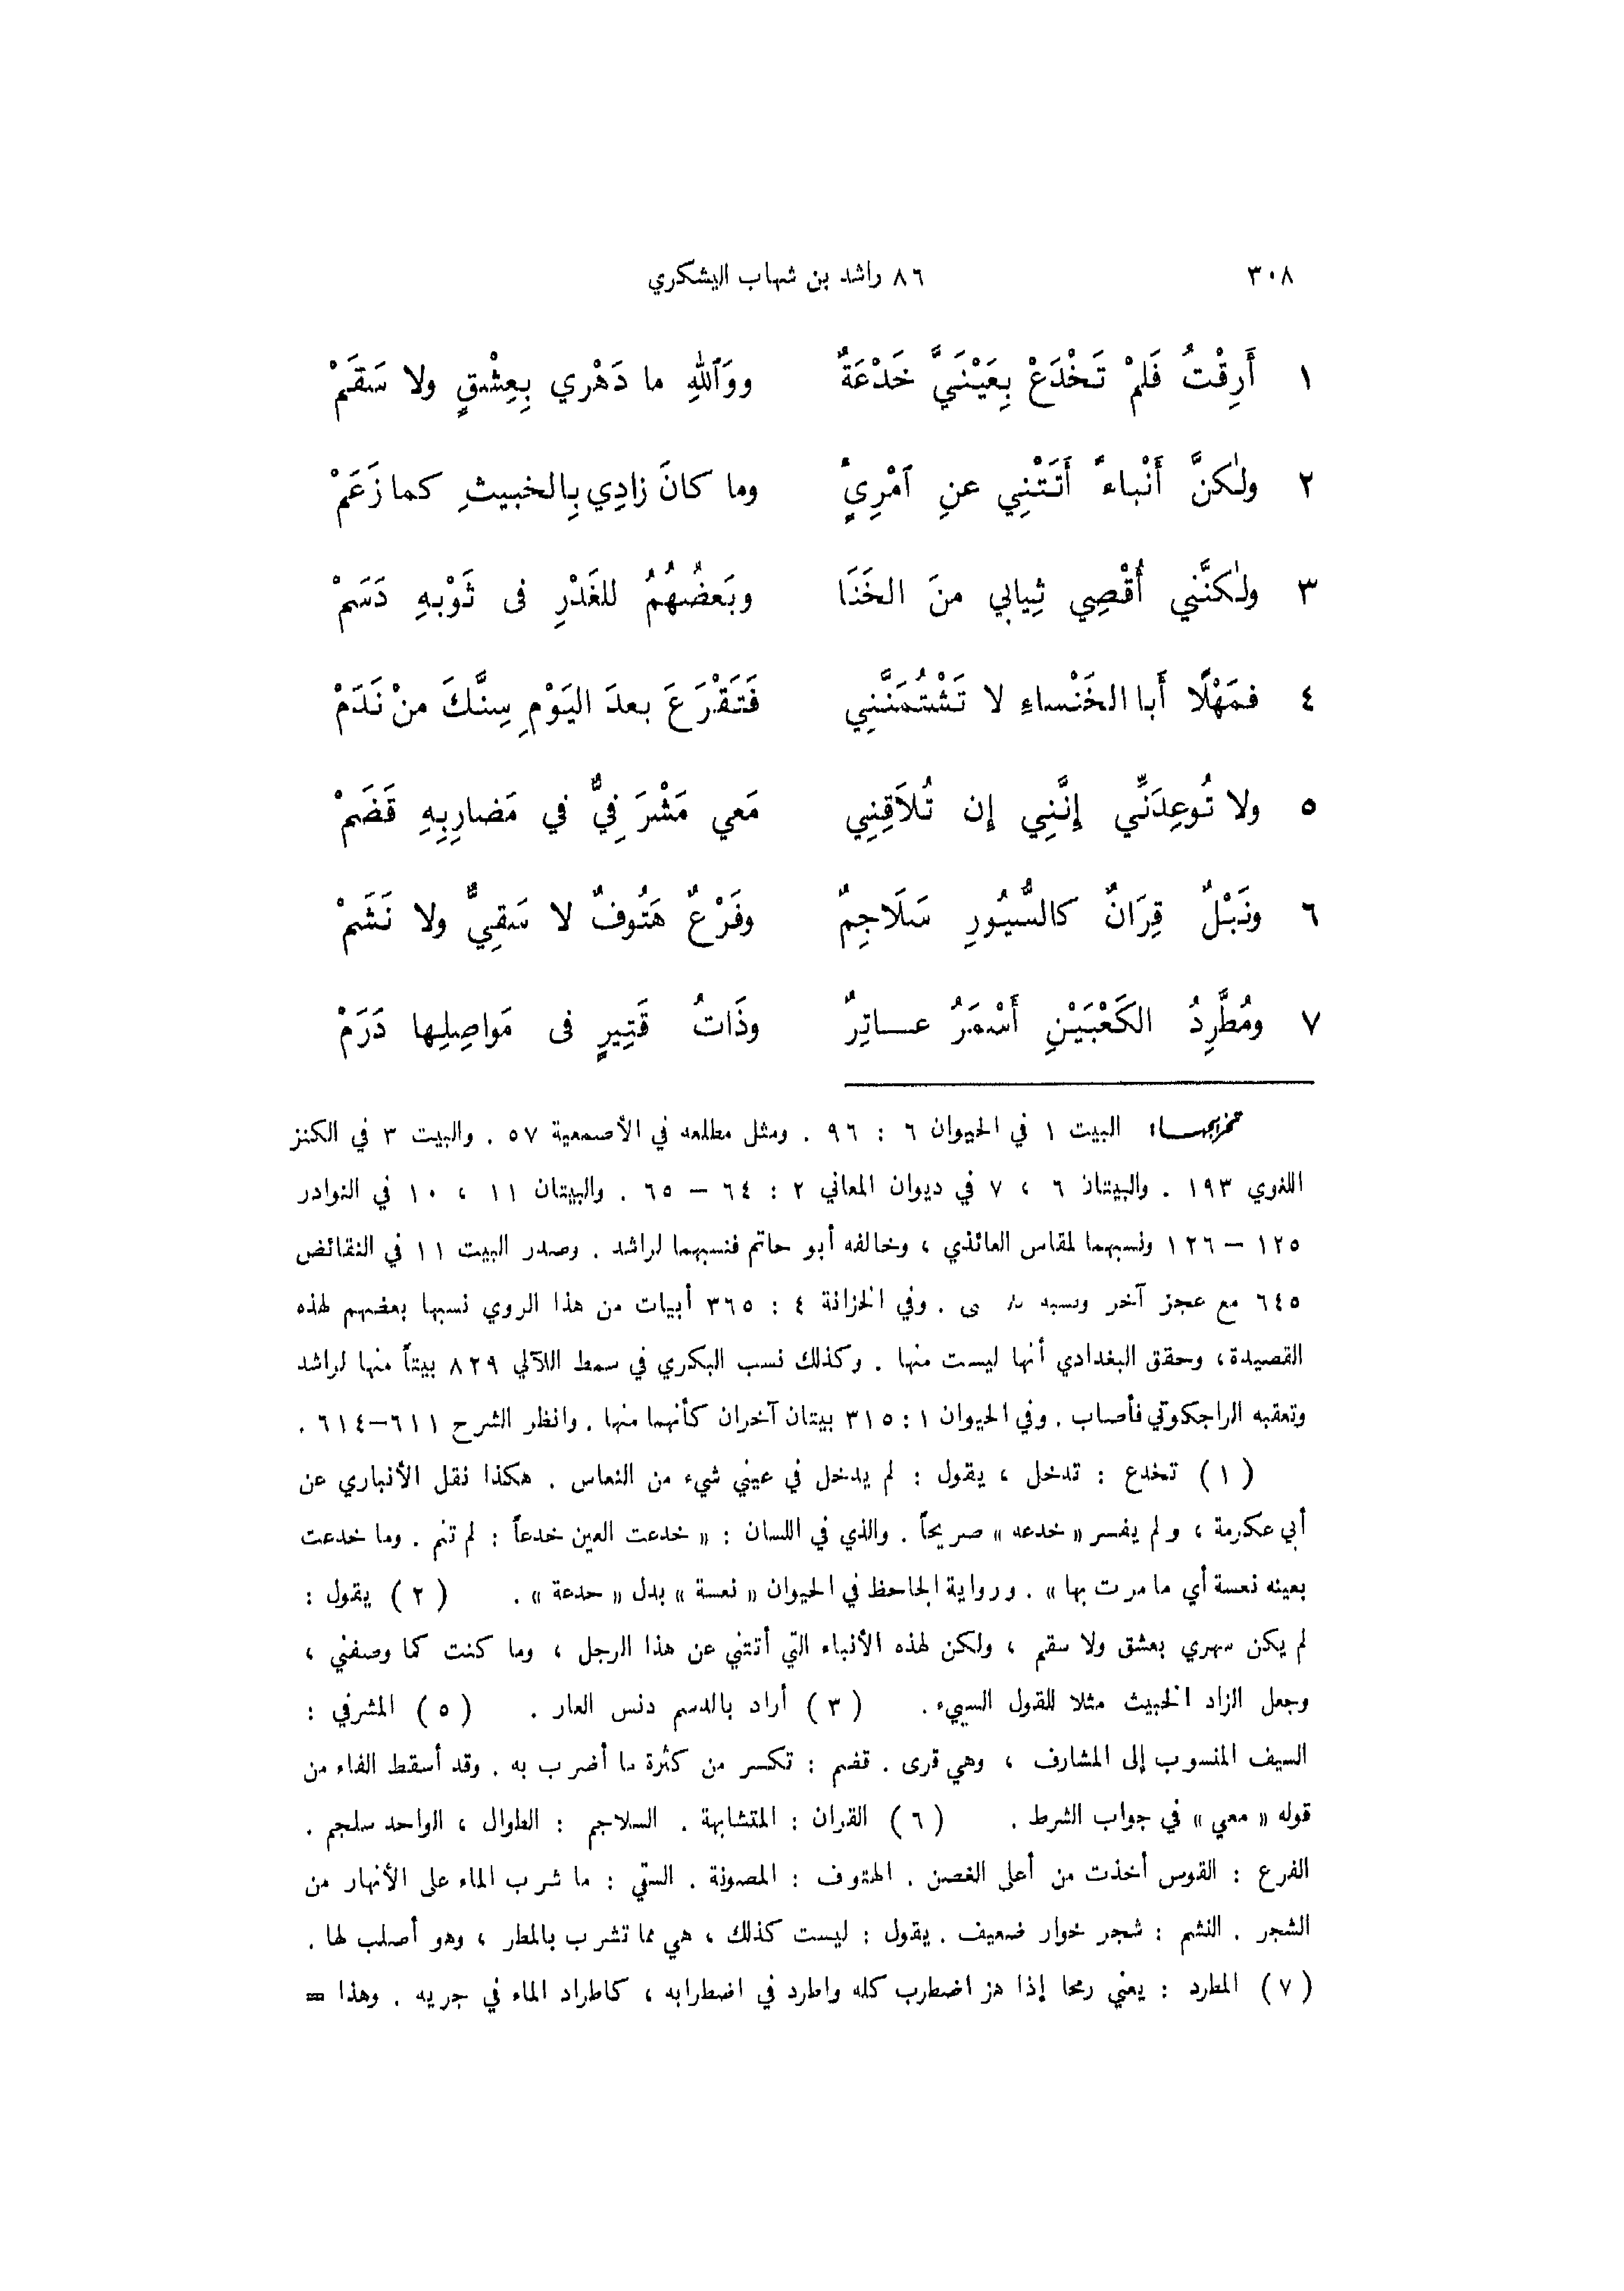 ٣٠٨
٨٦ راشد بن شهاب اليشكري
١ أَرِقْتُ فَلمْ تَخْدَعْ بِعَيْنَيَّ خَدْعَةٌ ووَٱللهِ ما دَهْري بِعِشْقٍ ولا سَقَمْ
٢ ولٰكنَّ أَنْباءً أَتَتْنِي عنِ ٱمْرِئٍ وما كانَ زادِي بِالخبيثِ كما زَعَمْ
٣ ولٰكنَّني أُقْصِي ثِيابي منَ الخَنَا وبَعضُهُمُ للغَدْرِ فى ثَوْبهِ دَسَمْ
٤ فمَهْلًا أَبا الخَنْساءِ لا تَشْتُمَنَّنِي فَتَقْرَعَ بعدَ اليَوْمِ سِنَّكَ منْ نَدَمْ
٥ ولا تُوعِدَنِّي إِنَّنِي إِن تُلاَقِنِي مَعي مَشْرَفِيٌّ في مَضارِبِهِ قَضَمْ
٦ ونَبْلٌ قِرَانٌ كالسُّيُورِ سَلَاجِمٌ وفَرْعٌ هَتُوفٌ لا سَقِيٌّ ولا نَشَمْ
٧ ومُطَّرِدُ الكَعْبَيْنِ أَسْمَرُ عاتِرٌ وذَاتُ قَتِيرٍ فى مَواصِلِها دَرَمْ
تخريجها: البيت ١ في الحيوان ٦ : ٩٦ . ومثل مطلعه في الأصمعية ٥٧ . والبيت ٣ في الكنز
اللغوي ١٩٣ . والبيتان ٦ ، ٧ في ديوان المعاني ٢ : ٦٤ – ٦٥ . والبيتان ١١ ، ١٠ في النوادر
١٢٥ – ١٢٦ ونسبهما لمقاس العائذي ، وخالفه أبو حاتم فنسبهما لراشد . وصدر البيت ١١ في النقائض
٦٤٥ مع عجز آخر ونسبه . وفي الخزانة ٤ : ٣٦٥ أبيات من هذا الروي نسبها بعضهم لهذه
القصيدة، وحقق البغدادي أنها ليست منها . وكذلك نسب البكري في سمط اللآلي ٨٢٩ بيتاً منها لراشد
وتعقبه الراجكوتي فأصاب . وفي الحيوان ١ : ٣١٥ بيتان آخران كأنهما منها . وانظر الشرح ٦١١–٦١٤ .
( ١ ) تخدع : تدخل ، يقول : لم يدخل في عيني شيء من النعاس . هكذا نقل الأنباري عن
أبي عكرمة ، ولم يفسر « خدعه » صريحاً . والذي في اللسان : « خدعت العين خدعاً : لم تنم . وما خدعت
بعينه نعسة أي ما مرت بها » . ورواية الجاحظ في الحيوان « نعسة » بدل « خدعة » . ( ٢ ) يقول :
لم يكن سهري بعشق ولا سقم ، ولكن لهذه الأنباء التي أتتني عن هذا الرجل ، وما كنت كما وصفني ،
وجعل الزاد الخبيث مثلا للقول السيء . ( ٣ ) أراد بالدسم دنس العار . ( ٥ ) المشرفي :
السيف المنسوب إلى المشارف ، وهي قرى . قضم : تكسر من كثرة ما أضرب به . وقد أسقط الفاء من
قوله « معي » في جواب الشرط . ( ٦ ) القران : المتشابهة . السلاجم : الطوال ، الواحد سلجم .
الفرع : القوس أخذت من أعلى الغصن . الهتوف : المصوتة . السقي : ما شرب الماء على الأنهار من
الشجر . النشم : شجر خوار ضعيف . يقول : ليست كذلك ، هي مما تشرب بالمطر ، وهو أصلب لها .
( ٧ ) المطرد : يعني رمحا إذا هز اضطرب كله واطرد في اضطرابه ، كاطراد الماء في جريه . وهذا =